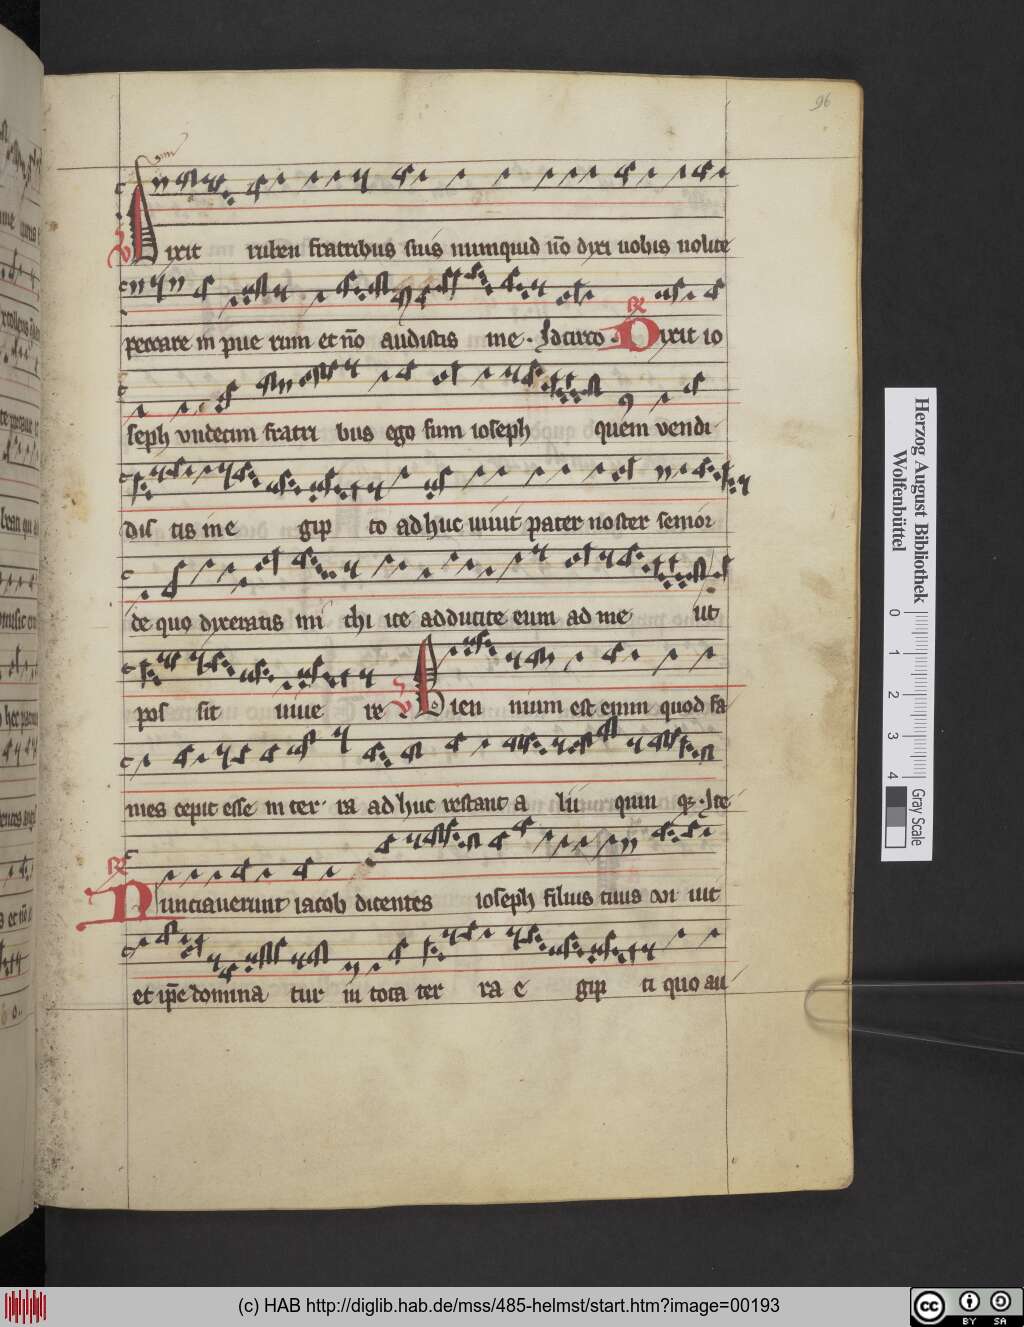 96
Dixit ruben fratribus suis numquid no͞ dixi uobis nolite
peccare in pue rum et no͞ audistis me. Idcirco. R͞ Dixit io
seph vndecim fratri bus ego sum ioseph quem vendi
dis tis in e gip to adhuc uiuit pater noster senior
de quo dixeratis mi chi ite adducite eum ad me ut
pos sit uiue re. V Bien nium est enim quod fa
mes cepit esse in ter ra adhuc restant a lii quin qȝ. Ite
R͞ Nunciauerunt iacob dicentes ioseph filius tuus ui uit
et ip͞e domina tur in tota ter ra e gip ti quo au
Herzog August Bibliothek
Wolfenbüttel
0 1 2 3 4
Gray Scale
(c) HAB http://diglib.hab.de/mss/485-helmst/start.htm?image=00193
cc BY SA